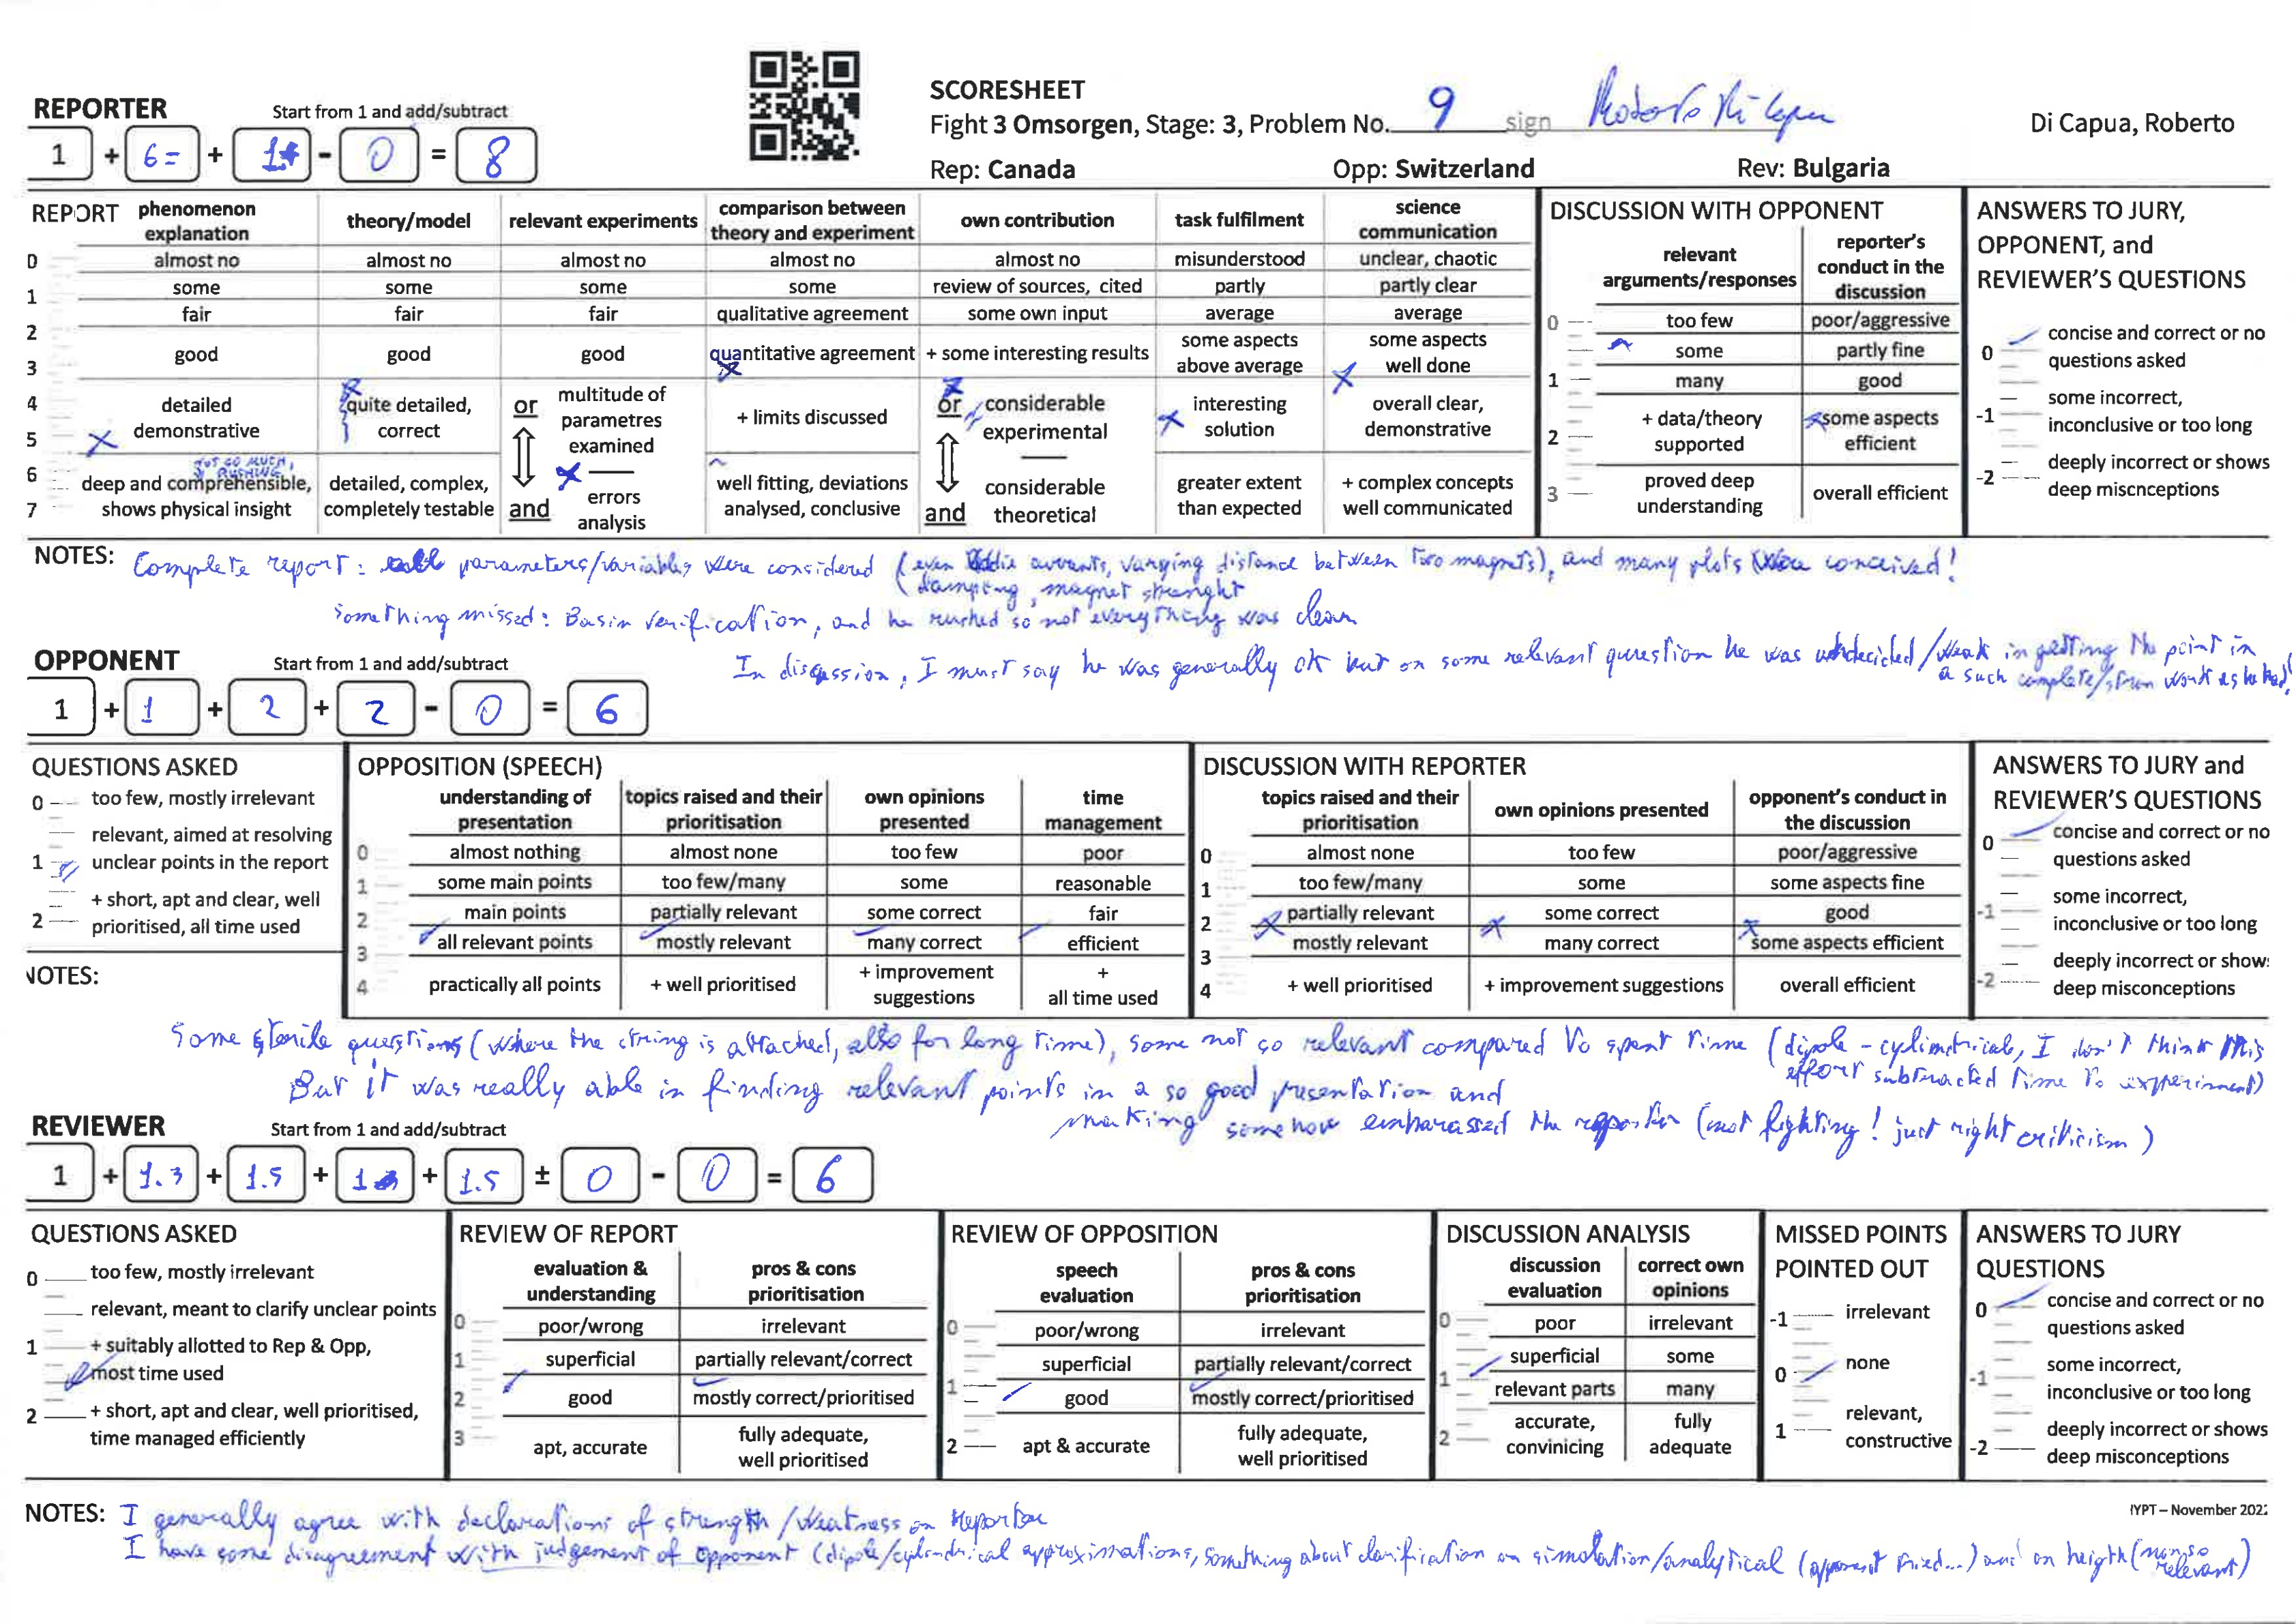 REPORTER Start from 1 and add/subtract
1 + 6= + 1 - 0 = 8
SCORESHEET
Fight 3 Omsorgen, Stage: 3, Problem No. 9 sign
Di Capua, Roberto
Rep: Canada Opp: Switzerland Rev: Bulgaria
REPORT phenomenon explanation theory/model relevant experiments comparison between theory and experiment own contribution task fulfilment science communication
0 almost no almost no almost no almost no almost no misunderstood unclear, chaotic
1 some some some some review of sources, cited partly partly clear
2 fair fair fair qualitative agreement some own input average average
3 good good good quantitative agreement + some interesting results some aspects above average some aspects well done
4 5 detailed demonstrative quite detailed, correct or multitude of parametres examined + limits discussed or considerable experimental interesting solution overall clear, demonstrative
NOT SO MUCH, RUSHING
6 7 deep and comprehensible, shows physical insight detailed, complex, completely testable and errors analysis well fitting, deviations analysed, conclusive and considerable theoretical greater extent than expected + complex concepts well communicated
DISCUSSION WITH OPPONENT
relevant arguments/responses reporter's conduct in the discussion
0 too few poor/aggressive
some partly fine
1 many good
2 + data/theory supported some aspects efficient
3 proved deep understanding overall efficient
ANSWERS TO JURY, OPPONENT, and REVIEWER'S QUESTIONS
0 concise and correct or no questions asked
-1 some incorrect, inconclusive or too long
-2 deeply incorrect or shows deep miscnceptions
NOTES: Complete report: all parameters/variables were considered (even eddie currents, varying distance between two magnets), and many plots were conceived!
damping, magnet strenght
Something missed: Basin verification, and he rushed so not everything was clear
In discussion, I must say he was generally ok but on some relevant question he was undecided/weak in getting the point in
a such complete/strong work as he had!
OPPONENT Start from 1 and add/subtract
1 + 1 + 2 + 2 - 0 = 6
QUESTIONS ASKED
0 too few, mostly irrelevant
relevant, aimed at resolving
1 unclear points in the report
+ short, apt and clear, well
2 prioritised, all time used
NOTES:
OPPOSITION (SPEECH)
understanding of presentation topics raised and their prioritisation own opinions presented time management
0 almost nothing almost none too few poor
1 some main points too few/many some reasonable
2 main points partially relevant some correct fair
3 all relevant points mostly relevant many correct efficient
4 practically all points + well prioritised + improvement suggestions + all time used
DISCUSSION WITH REPORTER
topics raised and their prioritisation own opinions presented opponent's conduct in the discussion
0 almost none too few poor/aggressive
1 too few/many some some aspects fine
2 partially relevant some correct good
3 mostly relevant many correct some aspects efficient
4 + well prioritised + improvement suggestions overall efficient
ANSWERS TO JURY and REVIEWER'S QUESTIONS
0 concise and correct or no questions asked
-1 some incorrect, inconclusive or too long
-2 deeply incorrect or show: deep misconceptions
Some sterile questions (where the string is attached, also for long time), some not so relevant compared to spent time (dipole - cylindrical, I don't think this
effort subtracted time to experiment)
But it was really able in finding relevant points in a so good presentation and
making somehow embarassed the reporter (not fighting! just right criticism)
REVIEWER Start from 1 and add/subtract
1 + 1.3 + 1.5 + 1 + 1.5 ± 0 - 0 = 6
QUESTIONS ASKED
0 too few, mostly irrelevant
relevant, meant to clarify unclear points
1 + suitably allotted to Rep & Opp,
most time used
2 + short, apt and clear, well prioritised,
time managed efficiently
REVIEW OF REPORT
evaluation & understanding pros & cons prioritisation
0 poor/wrong irrelevant
1 superficial partially relevant/correct
2 good mostly correct/prioritised
3 apt, accurate fully adequate, well prioritised
REVIEW OF OPPOSITION
speech evaluation pros & cons prioritisation
0 poor/wrong irrelevant
superficial partially relevant/correct
1 good mostly correct/prioritised
2 apt & accurate fully adequate, well prioritised
DISCUSSION ANALYSIS
discussion evaluation correct own opinions
0 poor irrelevant
superficial some
1 relevant parts many
2 accurate, convinicing fully adequate
MISSED POINTS POINTED OUT
-1 irrelevant
0 none
1 relevant, constructive
ANSWERS TO JURY QUESTIONS
0 concise and correct or no questions asked
-1 some incorrect, inconclusive or too long
-2 deeply incorrect or shows deep misconceptions
NOTES: I generally agree with declarations of strength/weakness on reporter
I have some disagreement with judgement of opponent (dipole/cylindrical approximations, something about clarification on simulation/analytical (opponent tried...) and on heigth (non so relevant)
IYPT – November 2022